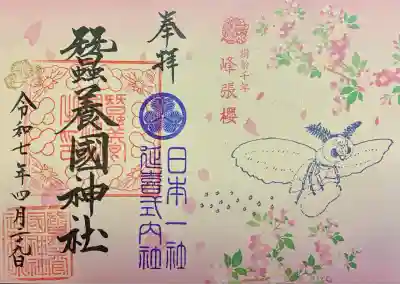 樹齢千年
峰張櫻
奉拝
日本一社
延喜式内社
蠶養國神社
令和七年四月